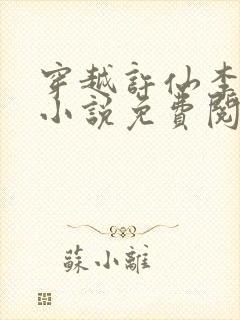 穿越許仙李
小說免費閱
蘇小離